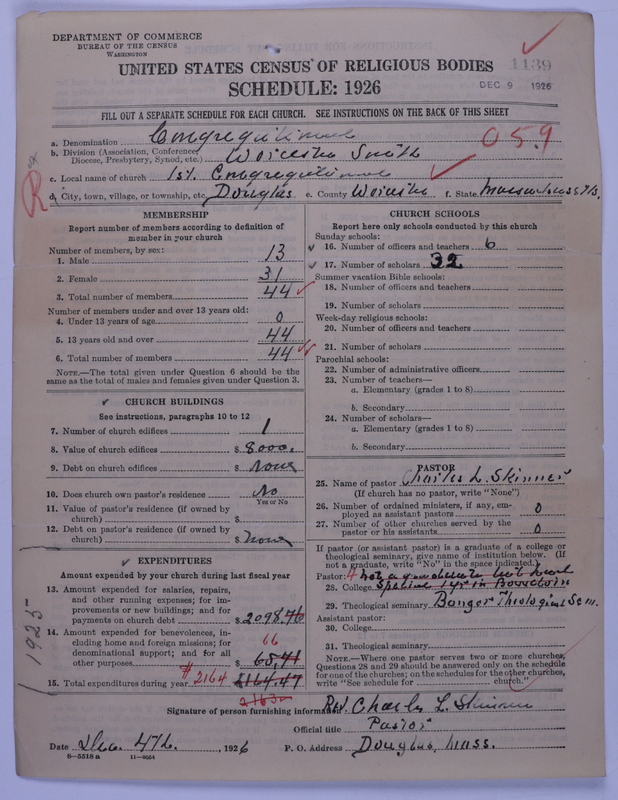 DEPARTMENT OF COMMERCE
BUREAU OF THE CENSUS
WASHINGTON
1139
UNITED STATES CENSUS OF RELIGIOUS BODIES
DEC 9 1926
SCHEDULE: 1926
FILL OUT A SEPARATE SCHEDULE FOR EACH CHURCH. SEE INSTRUCTIONS ON THE BACK OF THIS SHEET
a. Denomination Congregational
059
b. Division (Association, Conference, Diocese, Presbytery, Synod, etc.) Worcester South
c. Local name of church 1st. Congregational
R
d. City, town, village, or township, etc. Douglas e. County Worcester f. State Massachusetts.
MEMBERSHIP
Report number of members according to definition of member in your church
Number of members, by sex:
1. Male 13
2. Female 31
3. Total number of members 44
Number of members under and over 13 years old:
4. Under 13 years of age 0
5. 13 years old and over 44
6. Total number of members 44
NOTE.—The total given under Question 6 should be same as the total of males and females given under Question 3.
CHURCH BUILDINGS
See instructions, paragraphs 10 to 12
7. Number of church edifices 1
8. Value of church edifices $ 8000.
9. Debt on church edifices $ None
10. Does church own pastor's residence No
Yes or No
11. Value of pastor's residence (if owned by church) $
12. Debt on pastor's residence (if owned by church) $ None
1925
EXPENDITURES
Amount expended by your church during last fiscal year
13. Amount expended for salaries, repairs, and other running expenses; for improvements or new buildings; and for payments on church debt $ 2098.76
14. Amount expended for benevolences, including home and foreign missions; for denominational support; and for all other purposes $ 65,71
66
15. Total expenditures during year $2164 $2164.47
CHURCH SCHOOLS
Report here only schools conducted by this church
Sunday schools:
16. Number of officers and teachers 6
17. Number of scholars 32
Summer vacation Bible schools:
18. Number of officers and teachers
19. Number of scholars
Week-day religious schools:
20. Number of officers and teachers
21. Number of scholars
Parochial schools:
22. Number of administrative officers
23. Number of teachers—
a. Elementary (grades 1 to 8)
b. Secondary
24. Number of scholars—
a. Elementary (grades 1 to 8)
b. Secondary
PASTOR
25. Name of pastor Charles L. Skinner
(If church has no pastor, write "None")
26. Number of ordained ministers, if any, employed as assistant pastors 0
27. Number of other churches served by the pastor or his assistants 0
If pastor (or assistant pastor) is a graduate of a college or theological seminary, give name of institution below. (If not a graduate, write "No" in the space indicated.)
Pastor: not a graduate but had
28. College Special in Bowdoin
29. Theological seminary Bangor Theological Sem.
Assistant pastor:
30. College
31. Theological seminary
NOTE.—Where one pastor serves two or more churches, Questions 28 and 29 should be answered only on the schedule for one of the churches; on the schedules for the other churches, write "See schedule for church."
Signature of person furnishing information Rev. Charles L. Skinner
Official title Pastor
Date Dec. 4th. , 1926 P. O. Address Douglas, Mass.
8—5518 a 11—8664